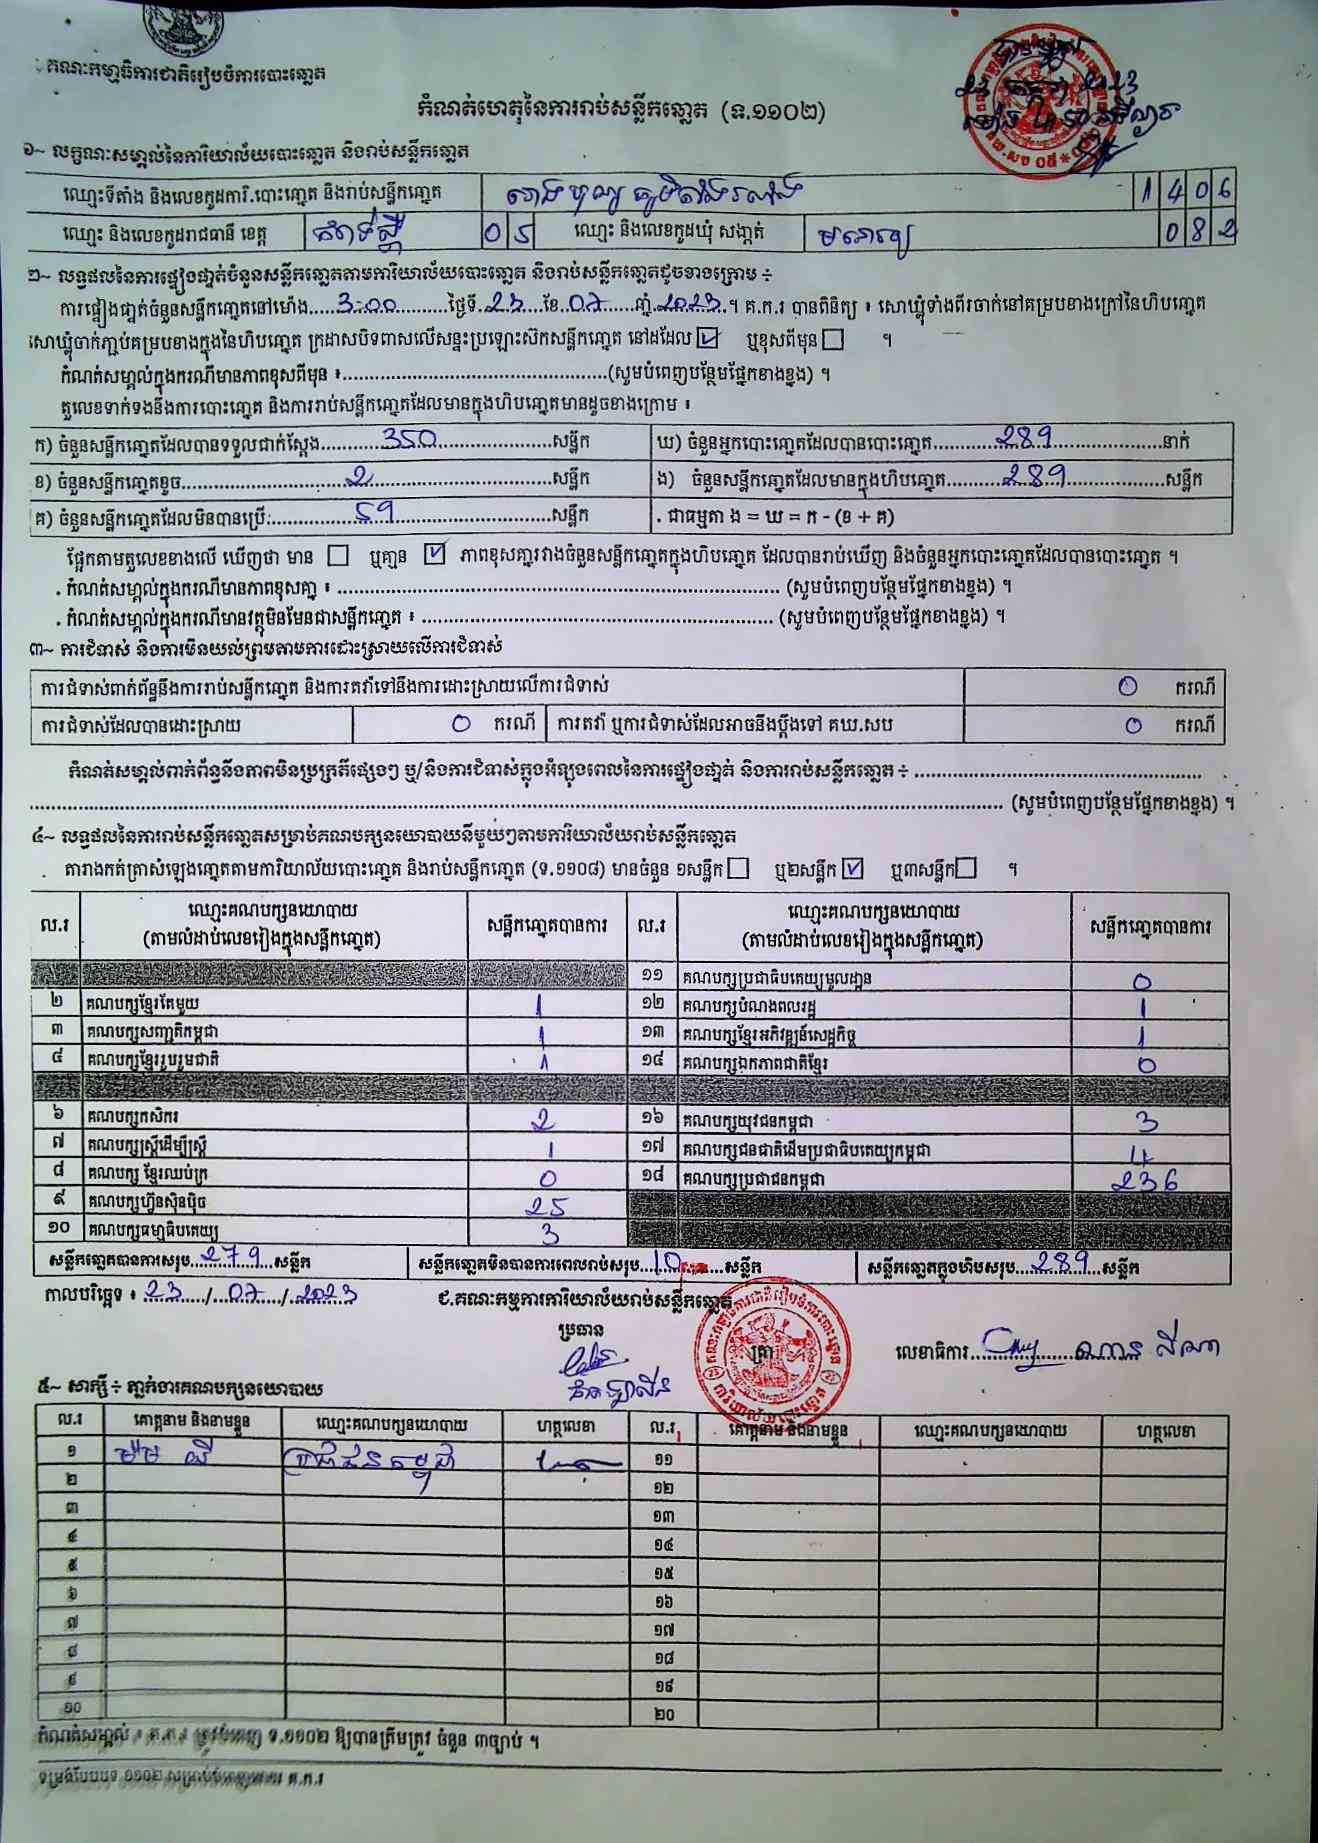 គណៈកម្មាធិការជាតិរៀបចំការបោះឆ្នោត
កំណត់ហេតុនៃការរាប់សន្លឹកឆ្នោត (ទ.១១០២)
១~ លក្ខណៈសម្គាល់នៃការិយាល័យបោះឆ្នោត និងរាប់សន្លឹកឆ្នោត
ឈ្មោះទីតាំង និងលេខកូដការិ.បោះឆ្នោត និងរាប់សន្លឹកឆ្នោត 1 4 0 6
ឈ្មោះ និងលេខកូដរាជធានី ខេត្ត 0 5 ឈ្មោះ និងលេខកូដឃុំ សង្កាត់ 0 8 2
២~ លទ្ធផលនៃការផ្ទៀងផ្ទាត់ចំនួនសន្លឹកឆ្នោតតាមការិយាល័យបោះឆ្នោត និងរាប់សន្លឹកឆ្នោតដូចខាងក្រោម ÷
ការផ្ទៀងផ្ទាត់ចំនួនសន្លឹកឆ្នោតនៅម៉ោង 3:00 ថ្ងៃទី 23 ខែ 07 ឆ្នាំ 2023 ។ គ.ក.រ បានពិនិត្យ ៖ សោឃ្លុំទាំងពីរចាក់នៅគម្របខាងក្រៅនៃហិបឆ្នោត
សោឃ្លុំចាក់ភ្ជាប់គម្របខាងក្នុងនៃហិបឆ្នោត ក្រដាសបិទពាសលើសន្ទះប្រឡោះស៊កសន្លឹកឆ្នោត នៅដដែល ☑ ឬខុសពីមុន ☐ ។
កំណត់សម្គាល់ក្នុងករណីមានភាពខុសពីមុន ៖ (សូមបំពេញបន្ថែមផ្នែកខាងខ្នង) ។
តួលេខទាក់ទងនឹងការបោះឆ្នោត និងការរាប់សន្លឹកឆ្នោតដែលមានក្នុងហិបឆ្នោតមានដូចខាងក្រោម ៖
ក) ចំនួនសន្លឹកឆ្នោតដែលបានទទួលជាក់ស្តែង 350 សន្លឹក ឃ) ចំនួនអ្នកបោះឆ្នោតដែលបានបោះឆ្នោត 289 នាក់
ខ) ចំនួនសន្លឹកឆ្នោតខូច 2 សន្លឹក ង) ចំនួនសន្លឹកឆ្នោតដែលមានក្នុងហិបឆ្នោត 289 សន្លឹក
គ) ចំនួនសន្លឹកឆ្នោតដែលមិនបានប្រើ 59 សន្លឹក . ជាធម្មតា ង = ឃ = ក - (ខ + គ)
ផ្អែកតាមតួលេខខាងលើ ឃើញថា មាន ☐ ឬគ្មាន ☑ ភាពខុសគ្នារវាងចំនួនសន្លឹកឆ្នោតក្នុងហិបឆ្នោត ដែលបានរាប់ឃើញ និងចំនួនអ្នកបោះឆ្នោតដែលបានបោះឆ្នោត ។
. កំណត់សម្គាល់ក្នុងករណីមានភាពខុសគ្នា ៖ (សូមបំពេញបន្ថែមផ្នែកខាងខ្នង) ។
. កំណត់សម្គាល់ក្នុងករណីមានវត្ថុមិនមែនជាសន្លឹកឆ្នោត ៖ (សូមបំពេញបន្ថែមផ្នែកខាងខ្នង) ។
៣~ ការជំទាស់ និងការមិនយល់ព្រមតាមការដោះស្រាយលើការជំទាស់
ការជំទាស់ពាក់ព័ន្ធនឹងការរាប់សន្លឹកឆ្នោត និងការតវ៉ាទៅនឹងការដោះស្រាយលើការជំទាស់ 0 ករណី
ការជំទាស់ដែលបានដោះស្រាយ 0 ករណី ការតវ៉ា ឬការជំទាស់ដែលអាចនឹងប្តឹងទៅ គឃ.សប 0 ករណី
កំណត់សម្គាល់ពាក់ព័ន្ធនឹងភាពមិនប្រក្រតីផ្សេងៗ ឬ/និងការជំទាស់ក្នុងអំឡុងពេលនៃការផ្ទៀងផ្ទាត់ និងការរាប់សន្លឹកឆ្នោត ÷
(សូមបំពេញបន្ថែមផ្នែកខាងខ្នង) ។
៤~ លទ្ធផលនៃការរាប់សន្លឹកឆ្នោតសម្រាប់គណបក្សនយោបាយនីមួយៗតាមការិយាល័យរាប់សន្លឹកឆ្នោត
តារាងកត់ត្រាសំឡេងឆ្នោតតាមការិយាល័យបោះឆ្នោត និងរាប់សន្លឹកឆ្នោត (ទ.១១០៨) មានចំនួន ១សន្លឹក ☐ ឬ២សន្លឹក ☑ ឬ៣សន្លឹក ☐ ។
ល.រ ឈ្មោះគណបក្សនយោបាយ (តាមលំដាប់លេខរៀងក្នុងសន្លឹកឆ្នោត) សន្លឹកឆ្នោតបានការ ល.រ ឈ្មោះគណបក្សនយោបាយ (តាមលំដាប់លេខរៀងក្នុងសន្លឹកឆ្នោត) សន្លឹកឆ្នោតបានការ
១១ គណបក្សប្រជាធិបតេយ្យមូលដ្ឋាន 0
២ គណបក្សខ្មែរតែមួយ 1 ១២ គណបក្សបំណងពលរដ្ឋ 1
៣ គណបក្សសញ្ជាតិកម្ពុជា 1 ១៣ គណបក្សខ្មែរអភិវឌ្ឍន៍សេដ្ឋកិច្ច 1
៤ គណបក្សខ្មែររួបរួមជាតិ 1 ១៤ គណបក្សឯកភាពជាតិខ្មែរ 0
៦ គណបក្សកសិករ 2 ១៦ គណបក្សយុវជនកម្ពុជា 3
៧ គណបក្សស្ត្រីដើម្បីស្ត្រី 1 ១៧ គណបក្សជនជាតិដើមប្រជាធិបតេយ្យកម្ពុជា 4
៨ គណបក្ស ខ្មែរឈប់ក្រ 0 ១៨ គណបក្សប្រជាជនកម្ពុជា 236
៩ គណបក្សហ៊្វុនស៊ិនប៉ិច 25
១០ គណបក្សធម្មាធិបតេយ្យ 3
សន្លឹកឆ្នោតបានការសរុប 279 សន្លឹក សន្លឹកឆ្នោតមិនបានការពេលរាប់សរុប 10 សន្លឹក សន្លឹកឆ្នោតក្នុងហិបសរុប 289 សន្លឹក
កាលបរិច្ឆេទ ៖ 23 / 07 / 2023 ជ.គណៈកម្មការការិយាល័យរាប់សន្លឹកឆ្នោត
ប្រធាន ត្រា លេខាធិការ
៥~ សាក្សី ÷ ភ្នាក់ងារគណបក្សនយោបាយ
ល.រ គោត្តនាម និងនាមខ្លួន ឈ្មោះគណបក្សនយោបាយ ហត្ថលេខា ល.រ គោត្តនាម និងនាមខ្លួន ឈ្មោះគណបក្សនយោបាយ ហត្ថលេខា
១ ប្រជាជនកម្ពុជា ១១
២ ១២
៣ ១៣
៤ ១៤
៥ ១៥
៦ ១៦
៧ ១៧
៨ ១៨
៩ ១៩
១០ ២០
កំណត់សម្គាល់ ៖ គ.ក.រ ត្រូវបំពេញ ទ.១១០២ ឱ្យបានត្រឹមត្រូវ ចំនួន ៣ច្បាប់ ។
ទម្រង់បែបបទ ១១០២ សម្រាប់បំពេញដោយ គ.ក.រ